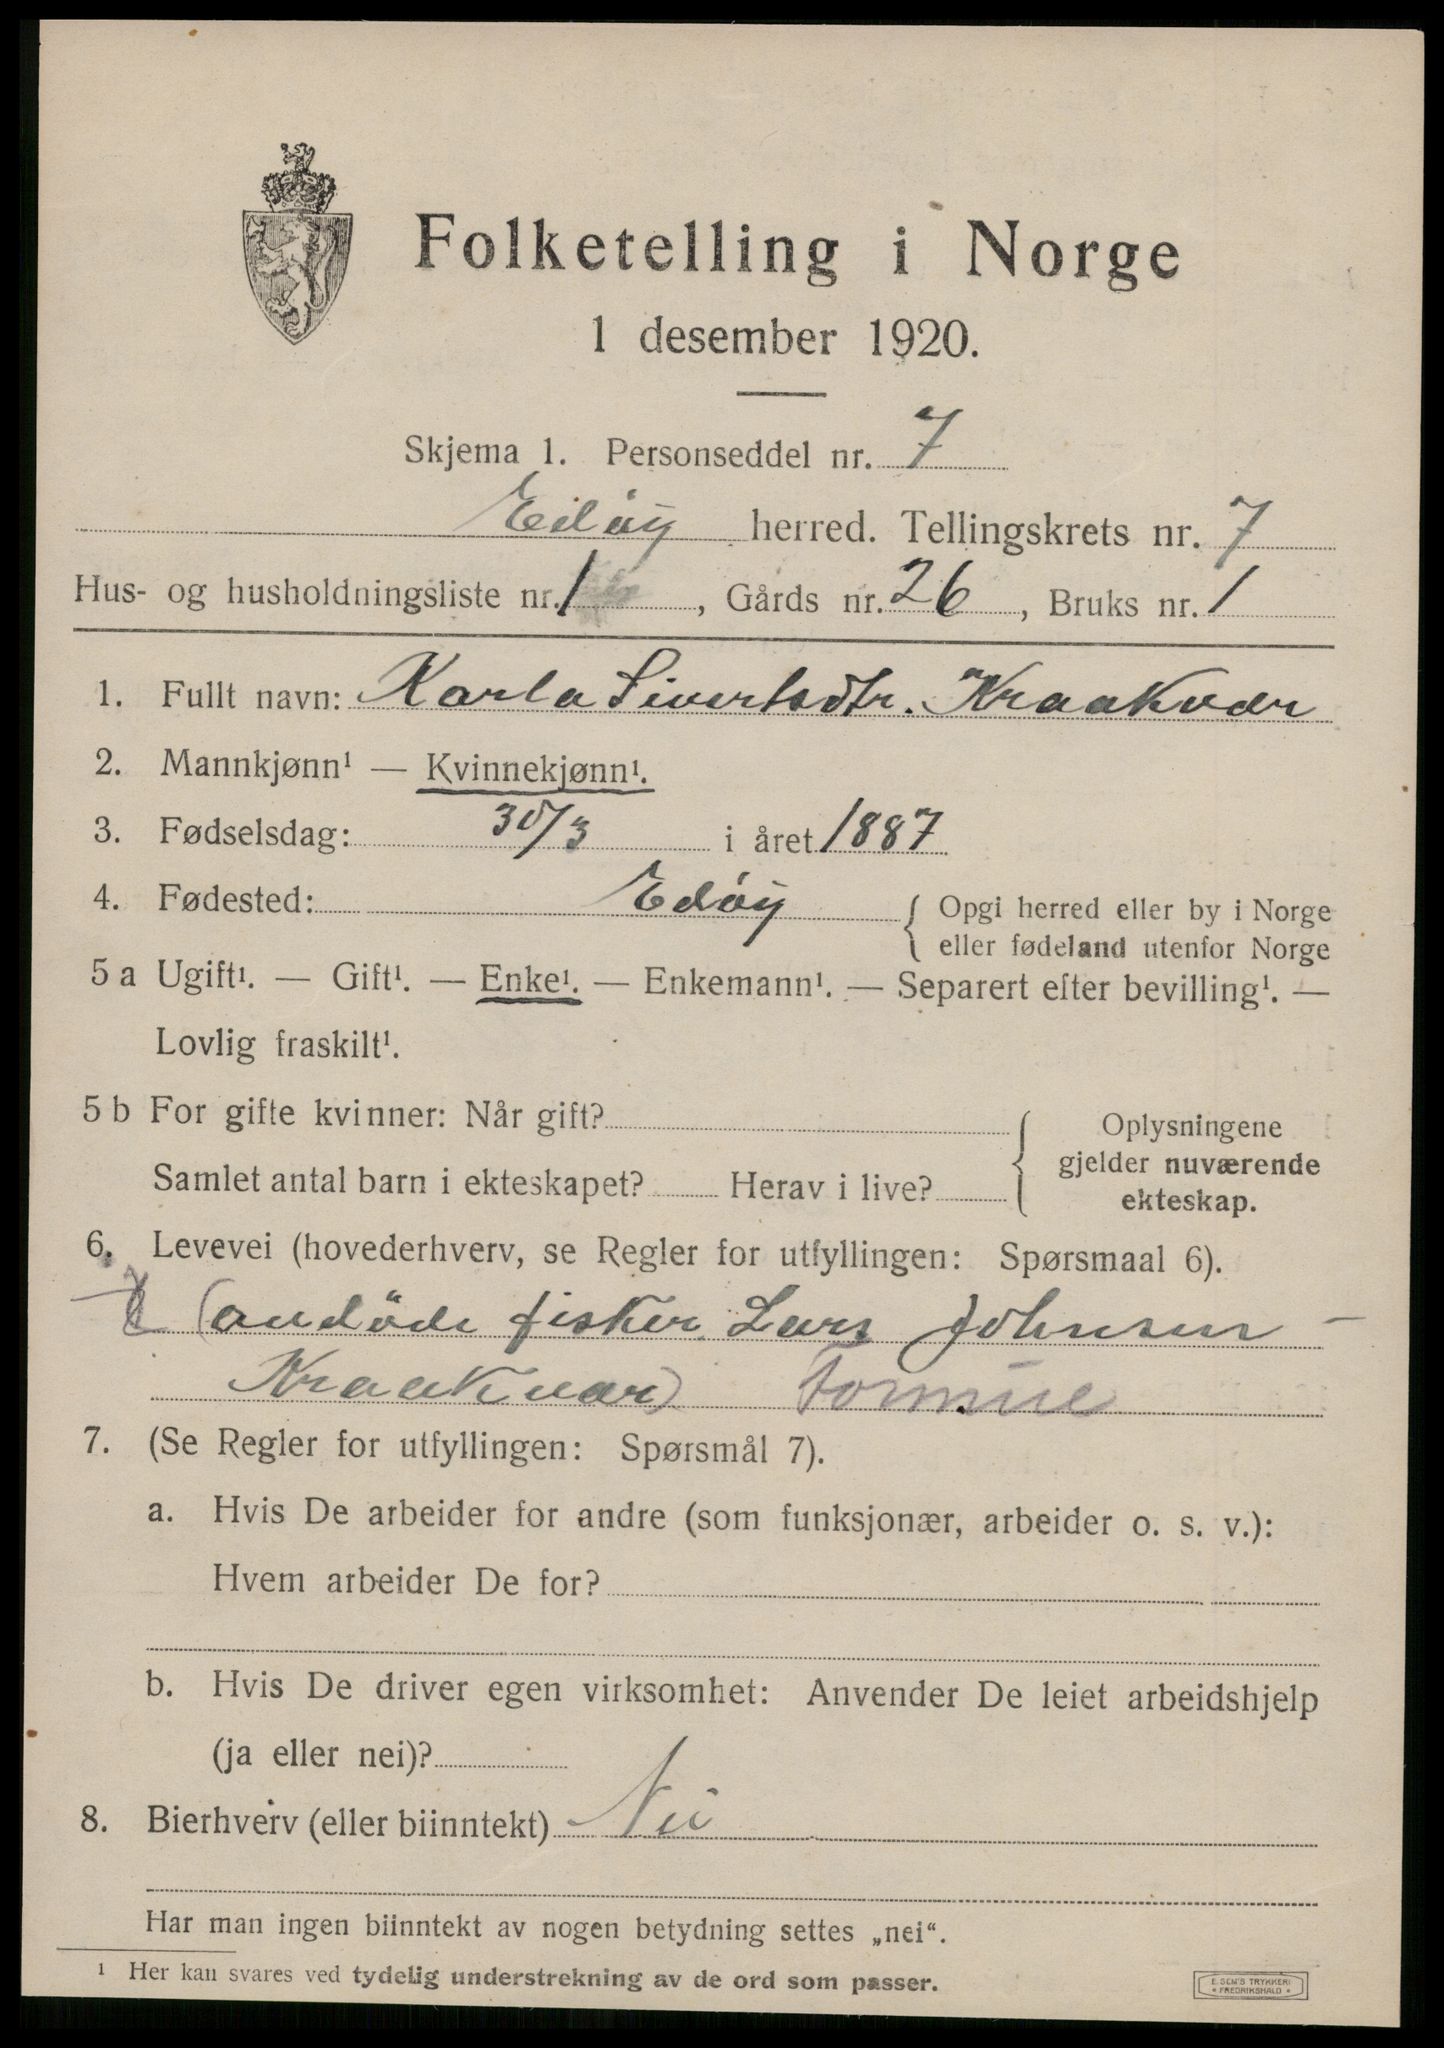 Folketelling i Norge
1 desember 1920.
Skjema 1. Personseddel nr. 7
Edöy herred. Tellingskrets nr. 7
Hus- og husholdningsliste nr. 1, Gårds nr. 26, Bruks nr. 1
1. Fullt navn: Karla Sivertsdtr. Kraakvær
2. Mannkjønn¹ — Kvinnekjønn¹.
3. Fødselsdag: 30/3 i året 1887
4. Fødested: Edöy { Opgi herred eller by i Norge
eller fødeland utenfor Norge
5 a Ugift¹. — Gift¹. — Enke¹. — Enkemann¹. — Separert efter bevilling¹. —
Lovlig fraskilt¹.
5 b For gifte kvinner: Når gift?
Samlet antal barn i ekteskapet? Herav i live?
{ Oplysningene
gjelder nuværende
ekteskap.
6. Levevei (hovederhverv, se Regler for utfyllingen: Spørsmaal 6).
(avdöde fisker Lars Johnsen
Kraakvær) Formue
7. (Se Regler for utfyllingen: Spørsmål 7).
a. Hvis De arbeider for andre (som funksjonær, arbeider o. s. v.):
Hvem arbeider De for?
b. Hvis De driver egen virksomhet: Anvender De leiet arbeidshjelp
(ja eller nei)?
8. Bierhverv (eller biinntekt) Nei
Har man ingen biinntekt av nogen betydning settes „nei“.
¹ Her kan svares ved tydelig understrekning av de ord som passer.
E. SEM'S TRYKKERI
* FREDRIKSHALD *